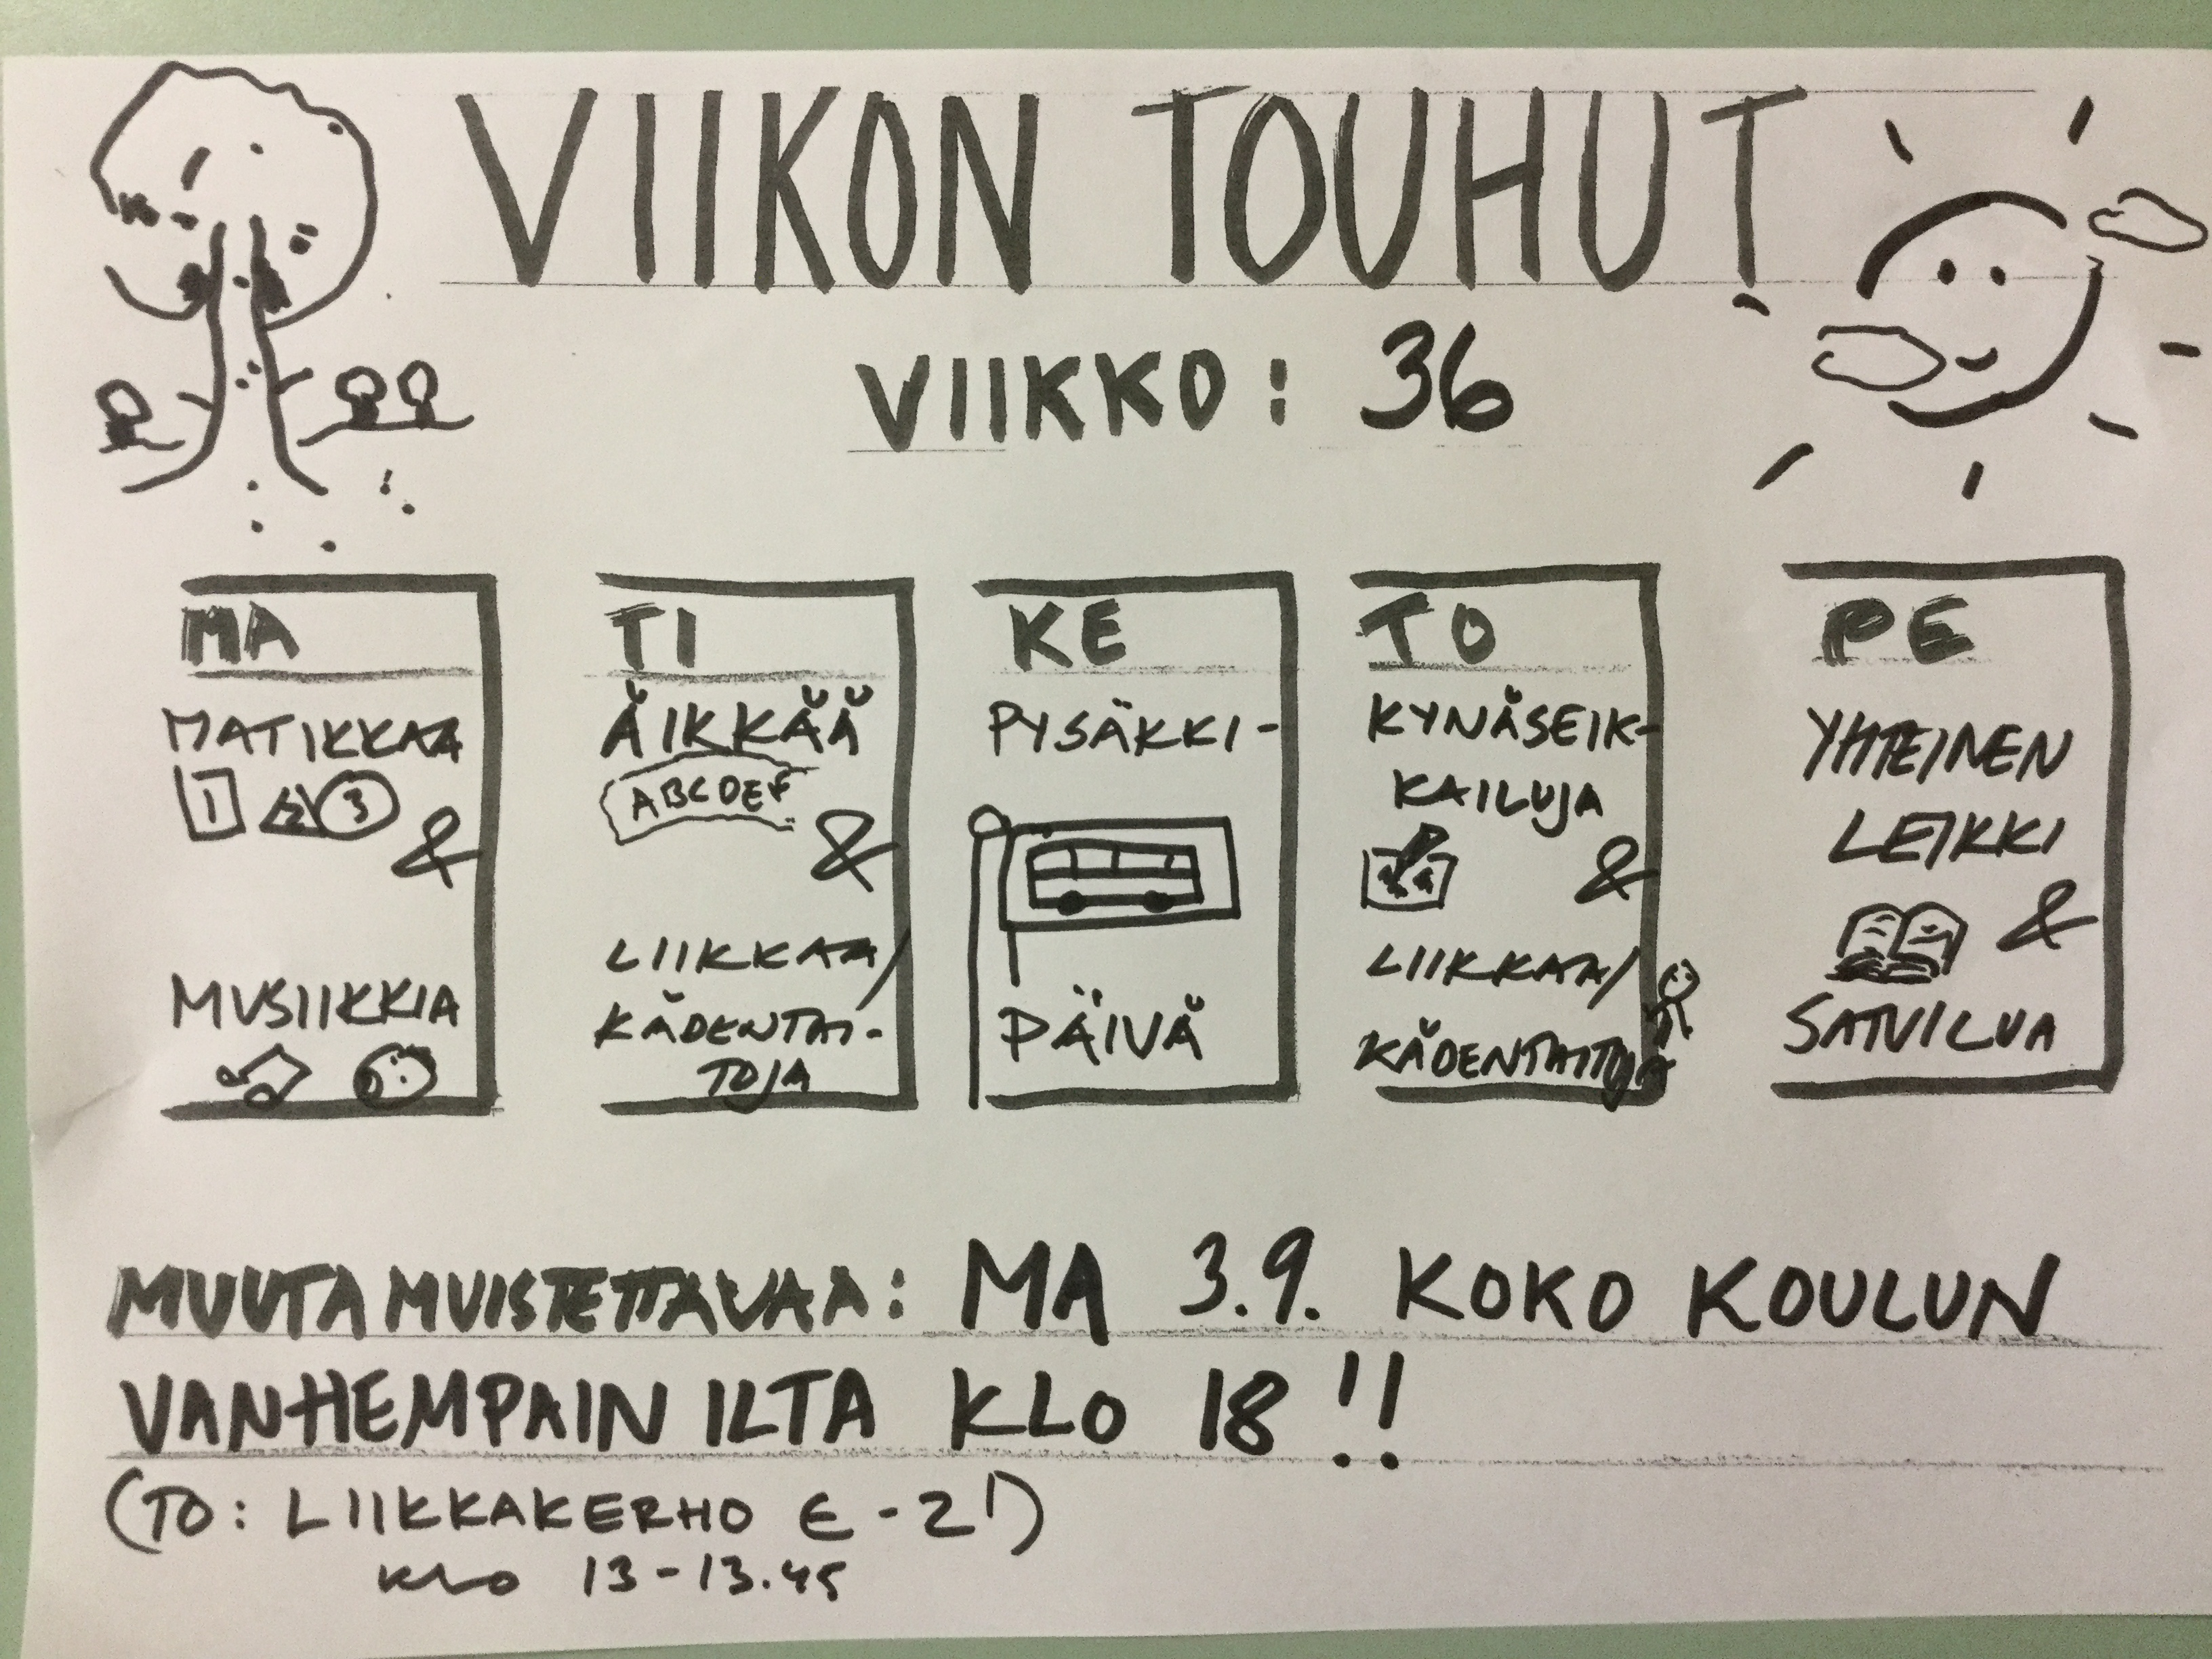 VIIKON TOUHUT
VIIKKO: 36
MA
MATIKKAA
1 2 3
&
MUSIIKKIA
TI
ÄIKKÄÄ
ABCDEF
&
LIIKKAA/
KÄDENTAI-
TOJA
KE
PYSÄKKI-
PÄIVÄ
TO
KYNÄSEIK-
KAILUJA
&
LIIKKAA/
KÄDENTAITOJA
PE
YHTEINEN
LEIKKI
&
SATUILUA
MUUTA MUISTETTAVAA: MA 3.9. KOKO KOULUN
VANHEMPAIN ILTA KLO 18!!
(TO: LIIKKAKERHO E-2')
KLO 13-13.45